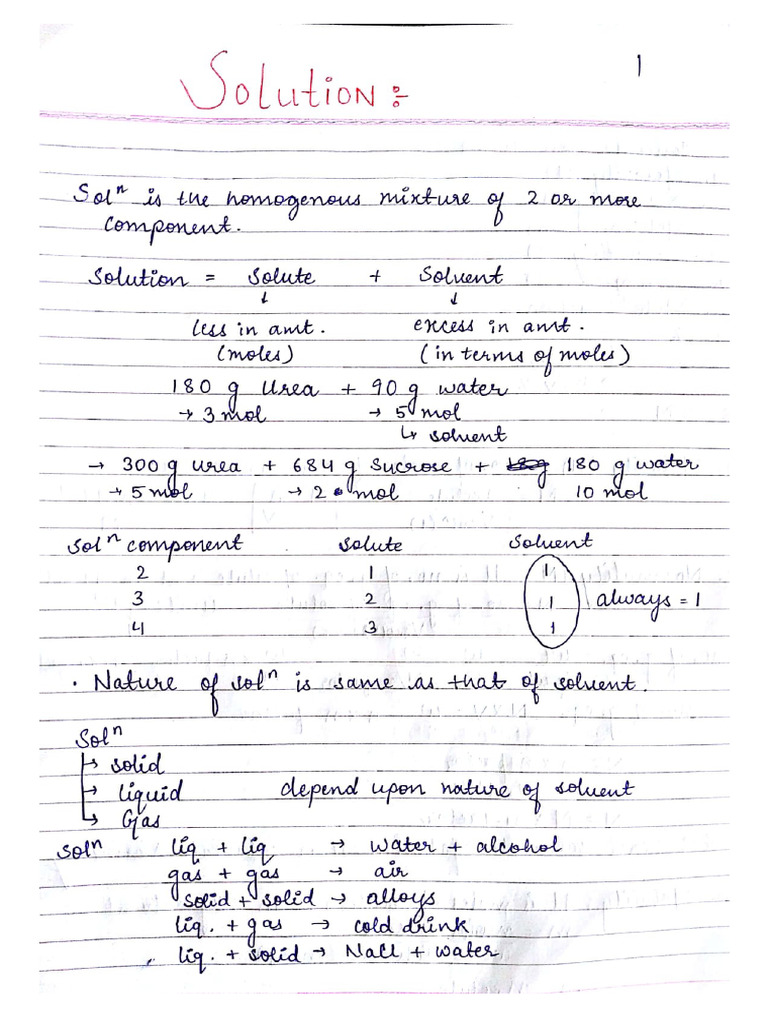 1
Solution:-
Solⁿ is the homogenous mixture of 2 or more
component.
Solution = Solute + Solvent
↓ ↓
less in amt. excess in amt.
(moles) (in terms of moles)
180 g Urea + 90 g water
→ 3 mol → 5 mol
↳ solvent
→ 300 g urea + 684 g Sucrose + 180 g water
→ 5 mol → 2 mol 10 mol
Solⁿ component Solute Solvent
2 1 1
3 2 1 always = 1
4 3 1
· Nature of solⁿ is same as that of solvent.
Solⁿ
→ solid
→ liquid depend upon nature of solvent
↳ Gas
Solⁿ liq + liq → water + alcohol
gas + gas → air
solid + solid → alloys
liq. + gas → cold drink
liq. + solid → NaCl + water